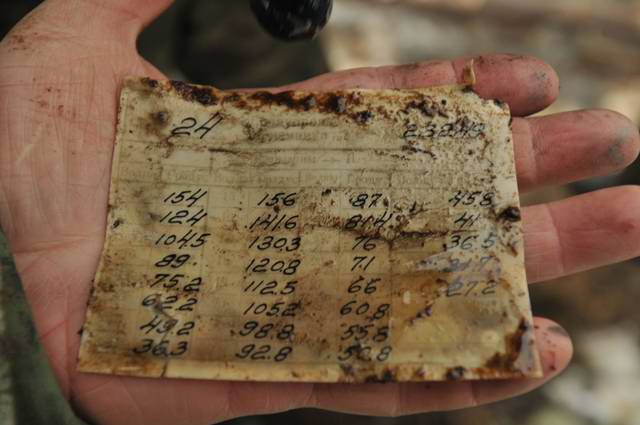 24 23249
154 156 87 45.8
124 141.6 81.4 41
104.5 130.3 76 36.5
89 120.8 71
75.2 112.5 66 27.2
62.2 105.2 60.8
49.2 98.8 55.8
36.3 92.8 50.8